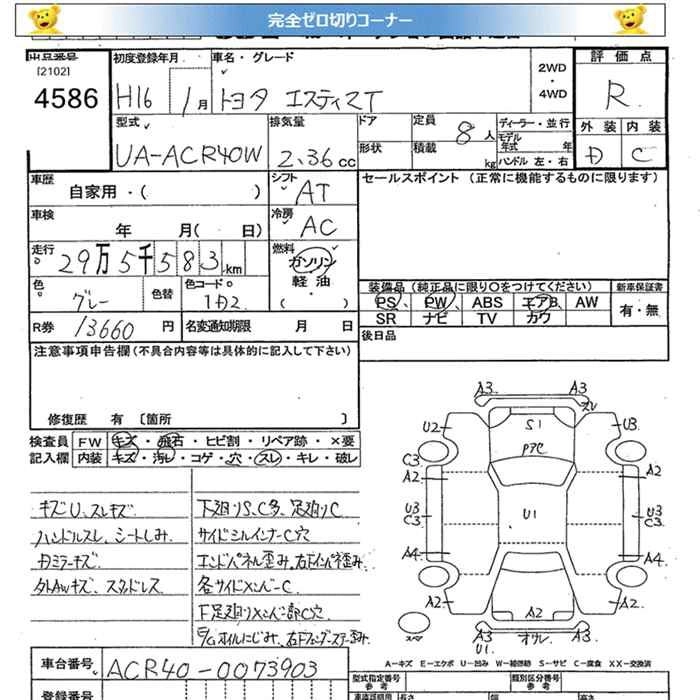 完全ゼロ切りコーナー
出品番号
[2102]
4586
初度登録年月
H16 1月
車名・グレード
トヨタ エスティマT
2WD・4WD
評価点
R
型式
UA-ACR40W
排気量
2.36cc
ドア
形状
定員 8人
積載 kg
ディーラー・並行
モデル年式 年
ハンドル 左・右
外装 内装
D C
車歴
自家用・( )
シフト
AT
セールスポイント (正常に機能するものに限ります)
車検
年 月( 日)
冷房
AC
走行
29万5千583km
燃料
ガソリン
軽油
・( )
色
グレー
色替
色コード
1D2
装備品(純正品に限り○をつけてください)
新車保証書
PS PW ABS エアB AW
SR ナビ TV カワ
有・無
R券 13660円
名変通知期限 月 日
後日品
注意事項申告欄(不具合内容等は具体的に記入して下さい)
修復歴 有〔箇所 〕
検査員記入欄
FW キズ・飛石・ヒビ割・リペア跡・×要
内装 キズ・汚レ・コゲ・穴・スレ・キレ・破レ
キズU、スレキズ
ハンドルスレ、シートしみ、
Dミラーキズ
外AWキズ、スタッドレス
下廻りS、C多、足廻りC
サイドシルインナーC穴
エンドパネル歪み、右下インパネ歪み、
各サイドメンバーC
下足廻りメンバ部C穴
E/Gオイルにじみ、右下フロアステー歪み
A3 A3
S1
U2 U3
C3 A2 A2
U3 C3 U1 U3 C3
A4 A4
A2 A2 A2
スペア
A3 U1 オサレ A3
A－キズ E－エクボ U－凹み W－補修跡 S－サビ C－腐食 XX－交換済
車台番号 ACR40-0073903
型式指定番号
参考
類別区分番号
参考
登録番号
長さ 幅 高さ